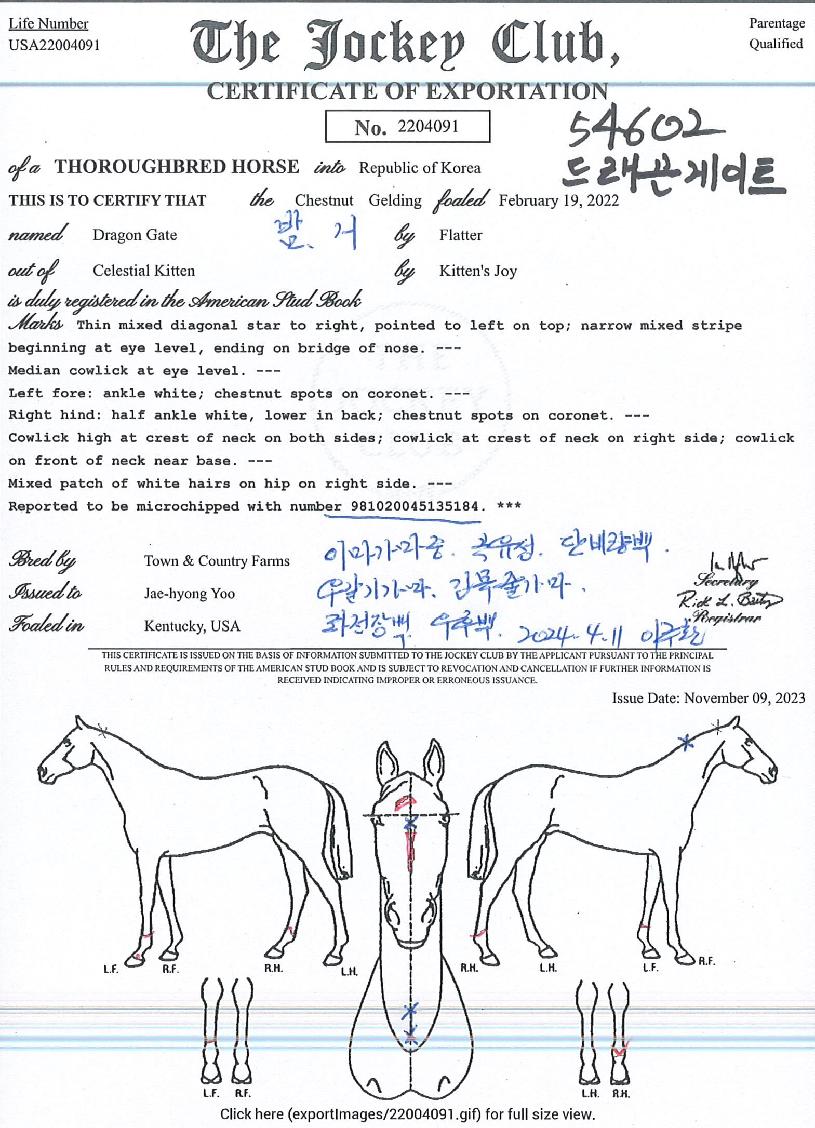 Life Number
USA22004091
The Jockey Club,
Parentage
Qualified
CERTIFICATE OF EXPORTATION
No. 2204091
54602
드래곤게이트
of a THOROUGHBRED HORSE into Republic of Korea
THIS IS TO CERTIFY THAT the Chestnut Gelding foaled February 19, 2022
named Dragon Gate 밤. 거 by Flatter
out of Celestial Kitten by Kitten's Joy
is duly registered in the American Stud Book
Marks Thin mixed diagonal star to right, pointed to left on top; narrow mixed stripe
beginning at eye level, ending on bridge of nose. ---
Median cowlick at eye level. ---
Left fore: ankle white; chestnut spots on coronet. ---
Right hind: half ankle white, lower in back; chestnut spots on coronet. ---
Cowlick high at crest of neck on both sides; cowlick at crest of neck on right side; cowlick
on front of neck near base. ---
Mixed patch of white hairs on hip on right side. ---
Reported to be microchipped with number 981020045135184. ***
Bred by Town & Country Farms
Issued to Jae-hyong Yoo
Foaled in Kentucky, USA
2024-4.11
Secretary
Registrar
THIS CERTIFICATE IS ISSUED ON THE BASIS OF INFORMATION SUBMITTED TO THE JOCKEY CLUB BY THE APPLICANT PURSUANT TO THE PRINCIPAL
RULES AND REQUIREMENTS OF THE AMERICAN STUD BOOK AND IS SUBJECT TO REVOCATION AND CANCELLATION IF FURTHER INFORMATION IS
RECEIVED INDICATING IMPROPER OR ERRONEOUS ISSUANCE.
Issue Date: November 09, 2023
L.F. R.F. R.H. L.H. R.H. L.H. L.F. R.F.
L.F. R.F. L.H. R.H.
Click here (exportImages/22004091.gif) for full size view.